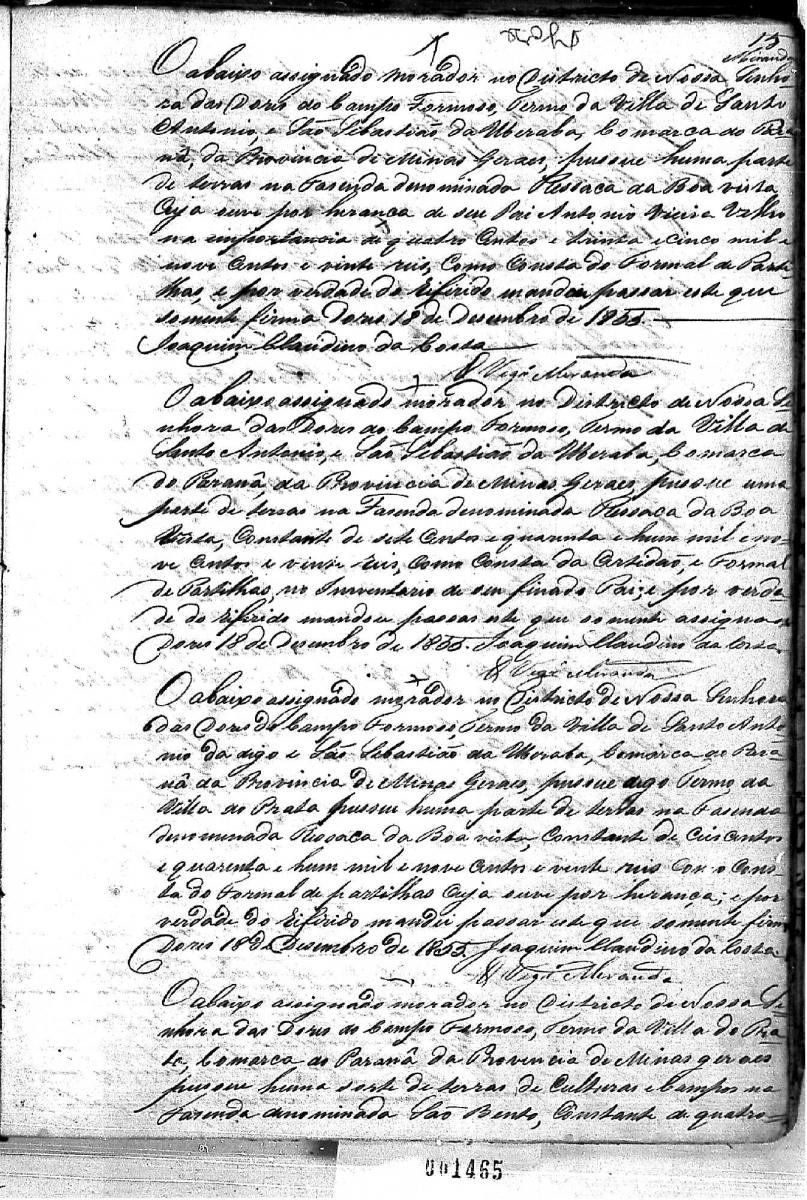 15
Miranda
O abaixo assignado morador no Districto de Nossa Senho-
ra das Dores do Campo Formoso, Termo da Villa de Santo
Antonio, e São Sebastião da Uberaba, Comarca do Para-
nâ, da Provincia de Minas Geraes, pussue huma parte
de terras na Fasenda denominada Ressaca da Boa vista
Cuja ouve por herança de seu Pai Antonio Vieira Velho
na emportancia de quatro Centos e trinta e cinco mil e
nove Centos e vinte reis, Como Consta do Formal de Parti-
lhas, e por verdade do referido mandou passar este que
somente firma Dores 18 de Desembro de 1855
Joaquim Claudino da Costa
O Vigº Miranda
O abaixo assignado morador no Districto de Nossa Se-
nhora das Dores do Campo Formoso, Termo da Villa de
Santo Antonio, e São Sebastião da Uberaba, Comarca
do Paranâ, da Provincia de Minas Geraes, pussue uma
parte de terras na Fasenda denominada Ressaca da Boa
Vista, Constante de sete Centos e quarenta e hum mil e no-
ve Centos e vinte reis, Como Consta da Certidão, e Formal
de Partilhas, no Inventario de seu finado Pai; e por verda-
de do referido mandou passar este que somente assigna
Dores 18 de Desembro de 1855. Joaquim Claudino da Costa
O Vigº Miranda
O abaixo assignado morador no Districto de Nossa Senhora
das Dores do Campo Formoso, Termo da Villa de Santo Anto-
nio da digo e São Sebastião da Uberaba, Comarca do Para-
nâ da Provincia de Minas Geraes, pussue digo Termo da
Villa do Prata pussue huma parte de terras na Fasenda
denominada Ressaca da Boa vista, Constante de Ceis Centos
e quarenta e hum mil e nove Centos e vinte reis Como Cons-
ta do Formal de partilhas Cuja ouve por herança; e por
verdade do referido mandei passar este que somente firmo
Dores 18 de Desembro de 1855. Joaquim Claudino da Costa
O Vigº Miranda
O abaixo assignado morador no Districto de Nossa Se-
nhora das Dores do Campo Formoso, Termo da Villa do Pra-
ta, Comarca do Paranâ da Provincia de Minas geraes
pussue huma sorte de terras de Culturas e Campos na
Fasenda denominada São Bento, Constante de quatro-
001465